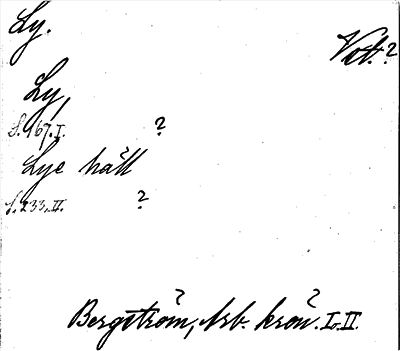 Ly.
Vet. ?
Ly,
S. 167. I. ?
Lye håll
S. 233. II. ?
Bergström, Arb. krön. I. II.